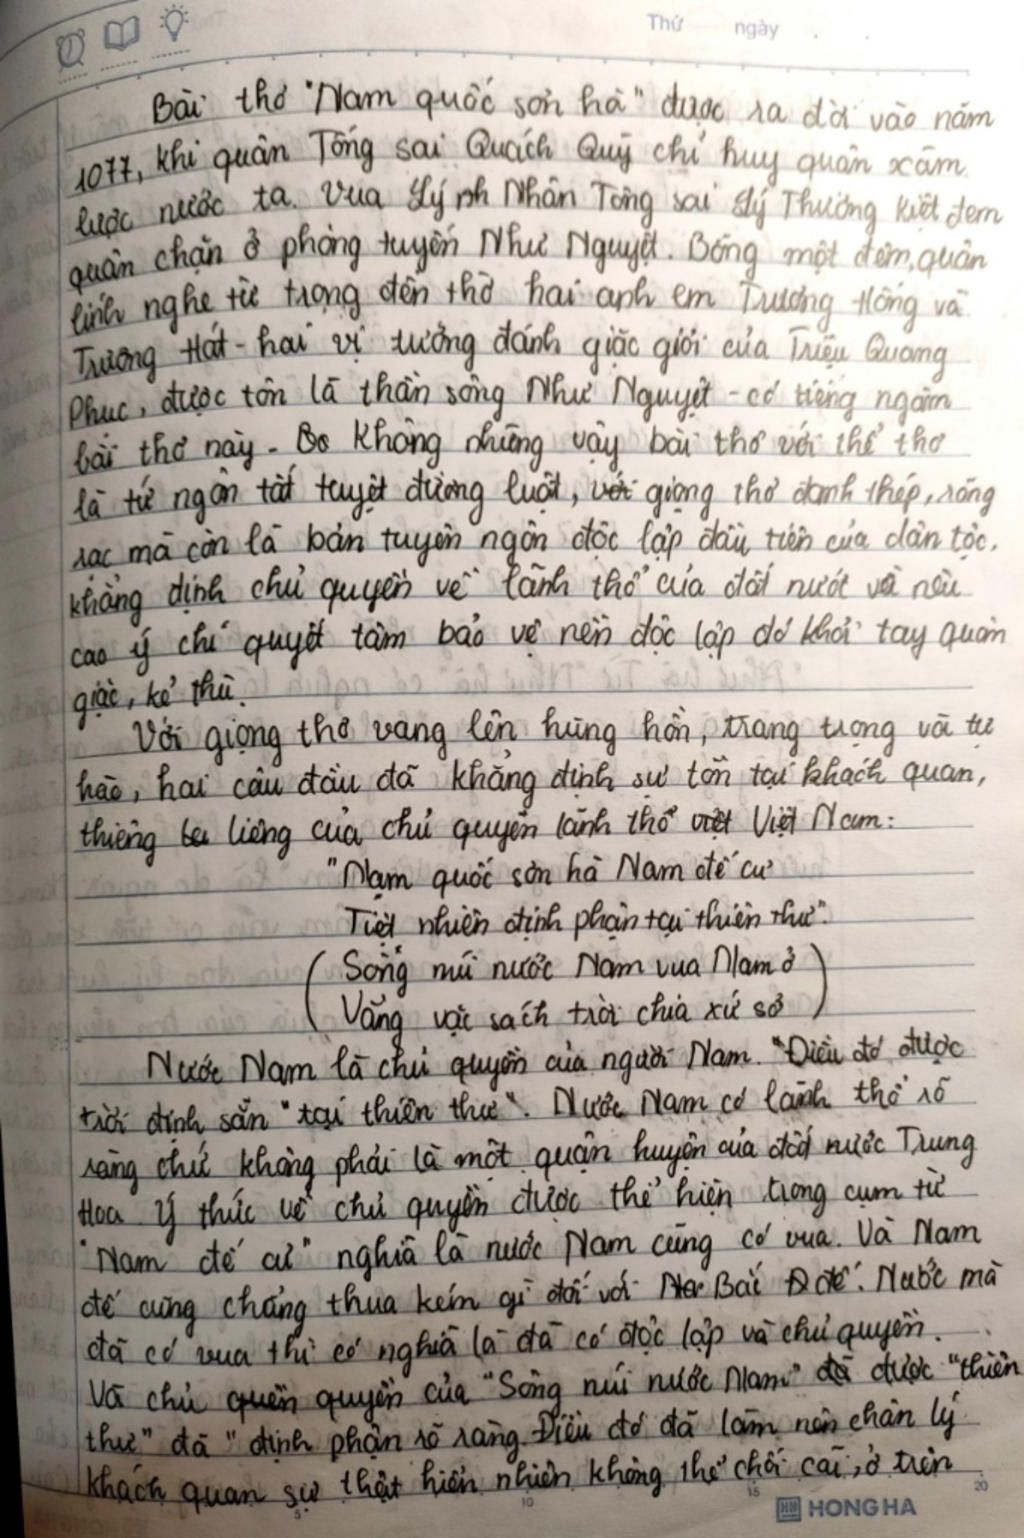 Thứ ngày
Bài thơ "Nam quốc sơn hà" được ra đời vào năm
1077, khi quân Tống sai Quách Quỳ chỉ huy quân xâm
lược nước ta. Vua Lý Nhân Tông sai Lý Thường Kiệt đem
quân chặn ở phòng tuyến Như Nguyệt. Bỗng một đêm, quân
lính nghe từ trong đền thờ hai anh em Trương Hống và
Trương Hát - hai vị tướng đánh giặc giỏi của Triệu Quang
Phục, được tôn là thần sông Như Nguyệt - có tiếng ngâm
bài thơ này. Không những vậy bài thơ với thể thơ
là tứ ngôn tất tuyệt đường luật, với giọng thơ đanh thép, rõng
rạc mà còn là bản tuyên ngôn độc lập đầu tiên của dân tộc.
khẳng định chủ quyền về lãnh thổ của đất nước và nêu
cao ý chí quyết tâm bảo vệ nền độc lập đó khỏi tay quân
giặc, kẻ thù.
Với giọng thơ vang lên hùng hồn, trang trọng và tự
hào, hai câu đầu đã khẳng định sự tồn tại khách quan,
thiêng liêng của chủ quyền lãnh thổ Việt Nam:
"Nam quốc sơn hà Nam đế cư
Tiệt nhiên định phận tại thiên thư".
(Sông núi nước Nam vua Nam ở
Vằng vặc sách trời chia xứ sở)
Nước Nam là chủ quyền của người Nam. "Điều đó được
trời định sẵn "tại thiên thư". Nước Nam có lãnh thổ rõ
ràng chứ không phải là một quận huyện của đất nước Trung
Hoa Ý thức về chủ quyền được thể hiện trong cụm từ
"Nam đế cư" nghĩa là nước Nam cũng có vua. Và Nam
đế cũng chẳng thua kém gì đối với Bắc đế. Nước mà
đã có vua thì có nghĩa là đã có độc lập và chủ quyền.
Và chủ quyền của "Sông núi nước Nam" được "thiên
thư" đã "định phận rõ ràng. Điều đó đã làm nên chân lý
khách quan sự thật hiển nhiên không thể chối cãi, ở trên
5 10 15 20
HONG HA